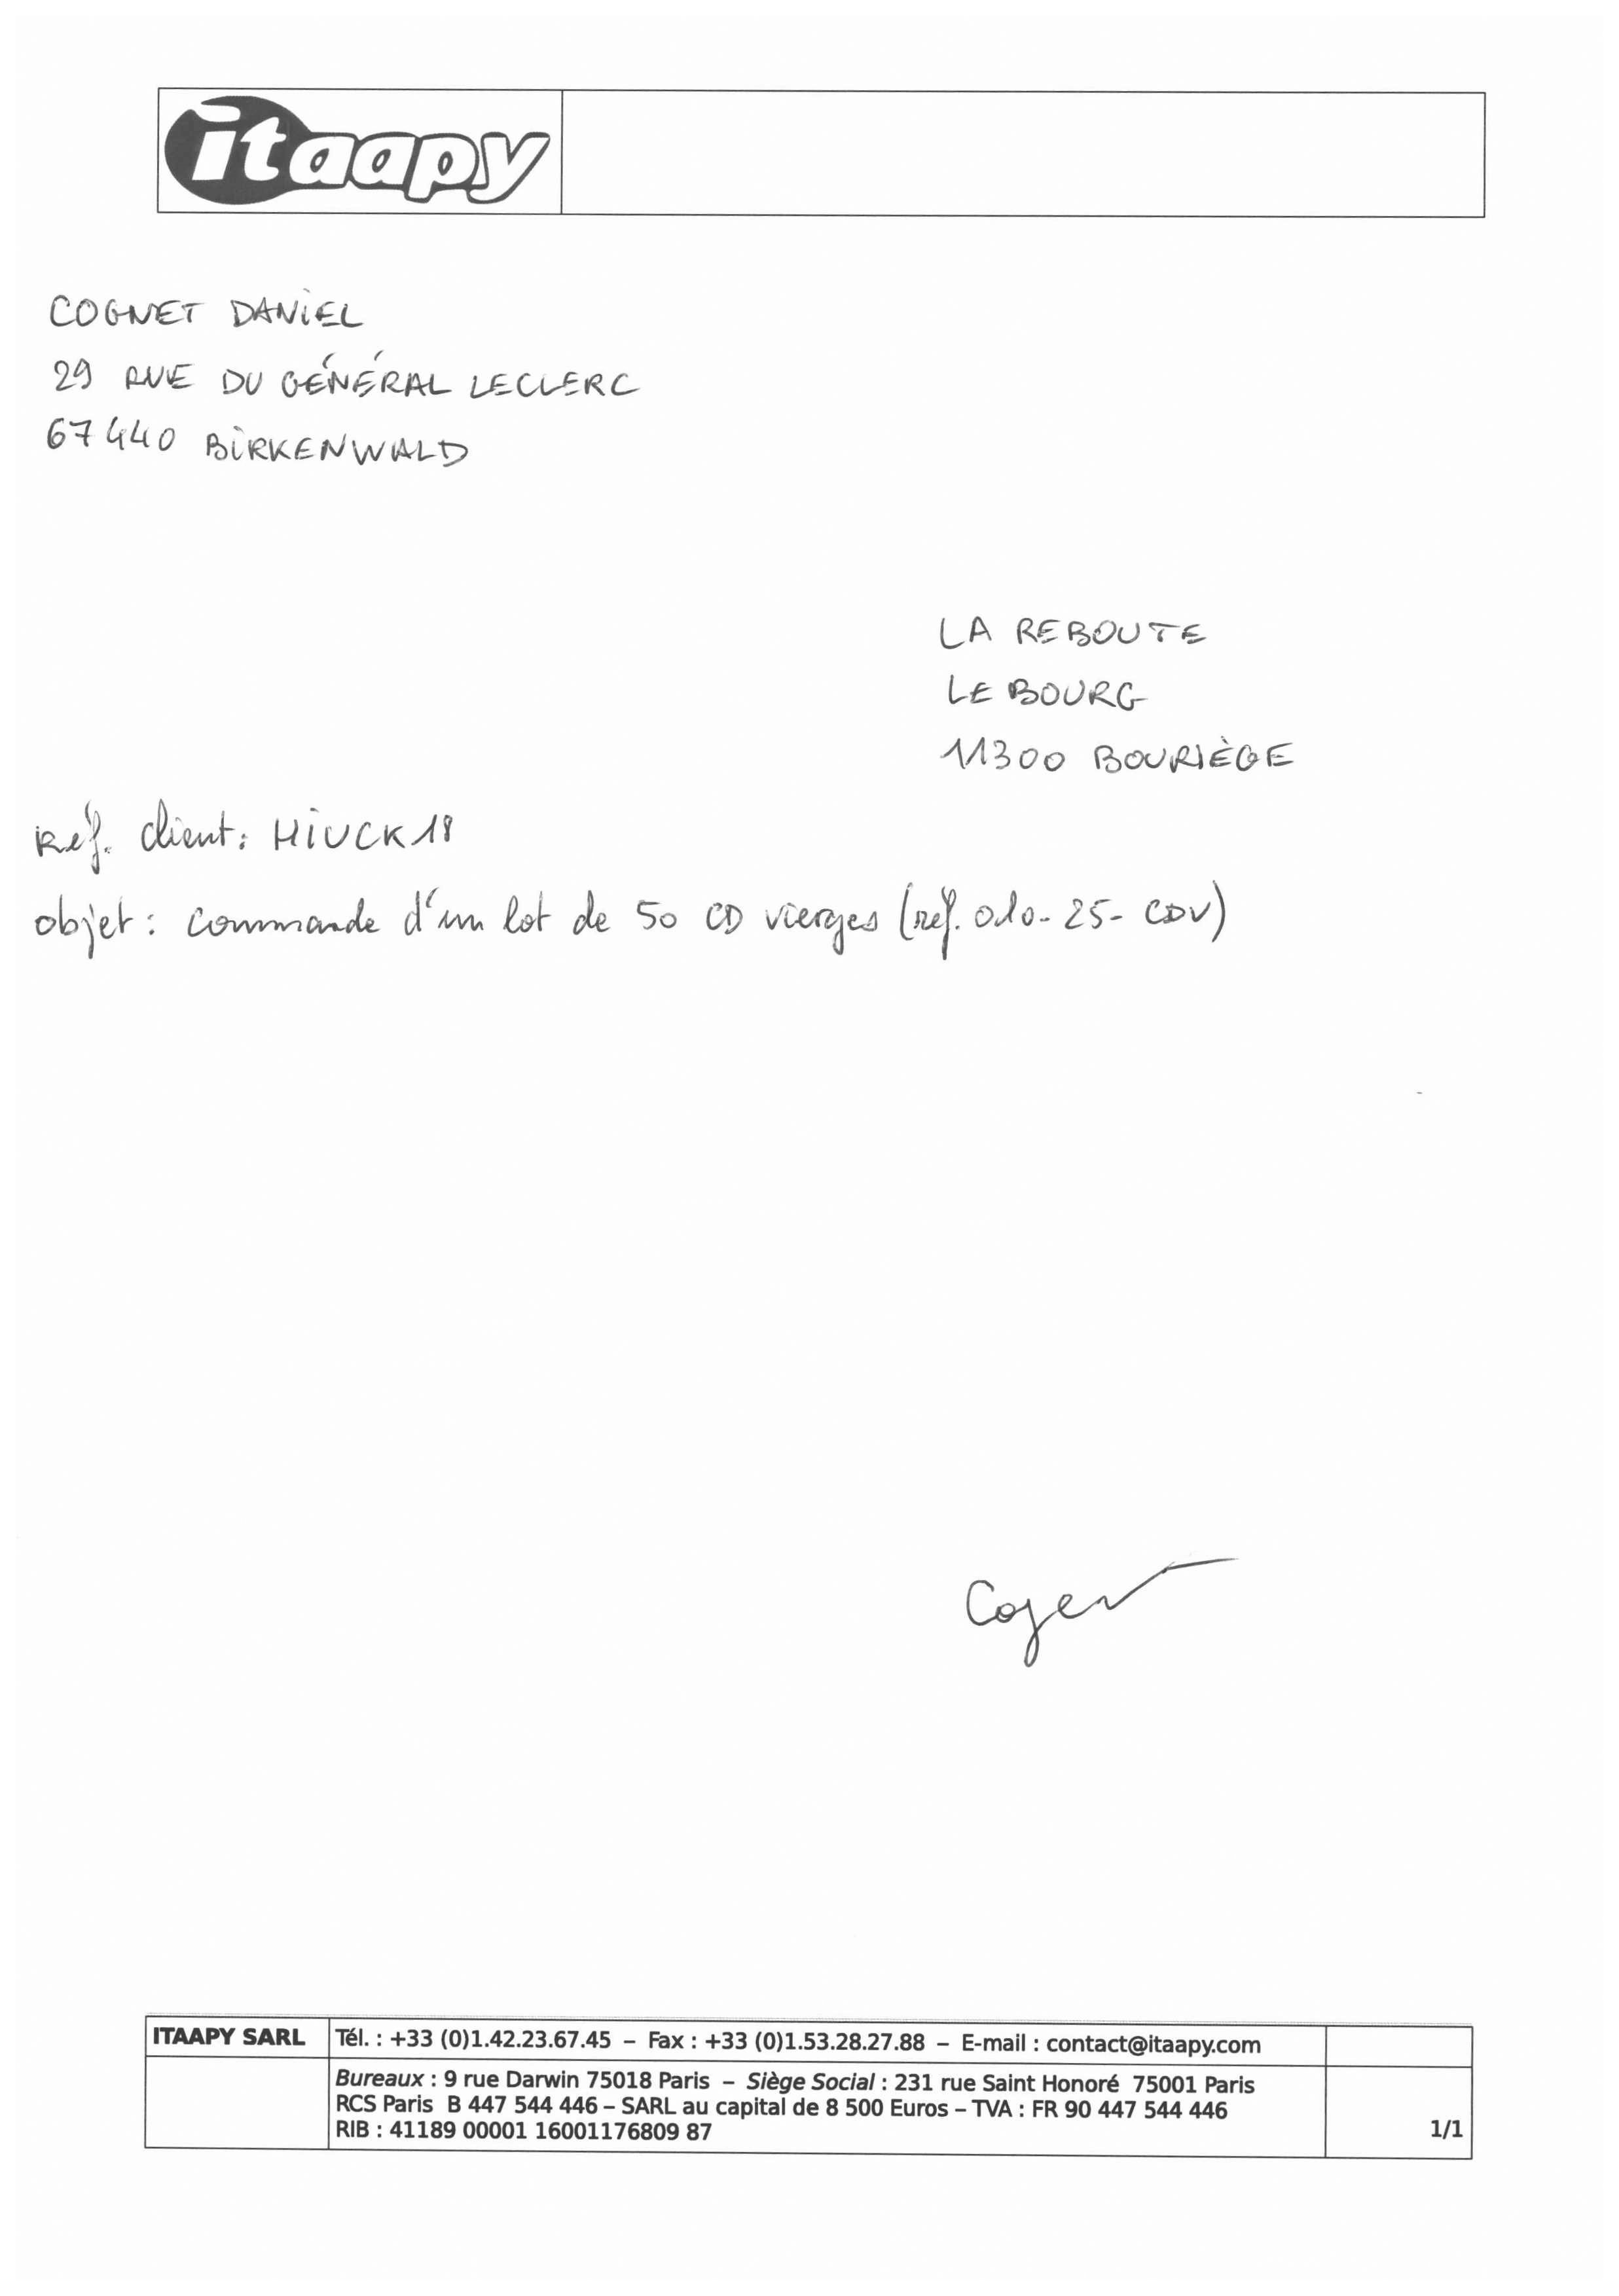 itaapy
COGNET DANIEL
29 RUE DU GÉNÉRAL LECLERC
67440 BIRKENWALD
LA REBOUTE
LE BOURG
11300 BOURIÈGE
Réf. client : HIUCK18
objet : commande d'un lot de 50 CD vierges (réf. 010-25-CDV)
ITAAPY SARL Tél. : +33 (0)1.42.23.67.45 – Fax : +33 (0)1.53.28.27.88 – E-mail : contact@itaapy.com
Bureaux : 9 rue Darwin 75018 Paris – Siège Social : 231 rue Saint Honoré 75001 Paris
RCS Paris B 447 544 446 – SARL au capital de 8 500 Euros – TVA : FR 90 447 544 446
RIB : 41189 00001 16001176809 87
1/1